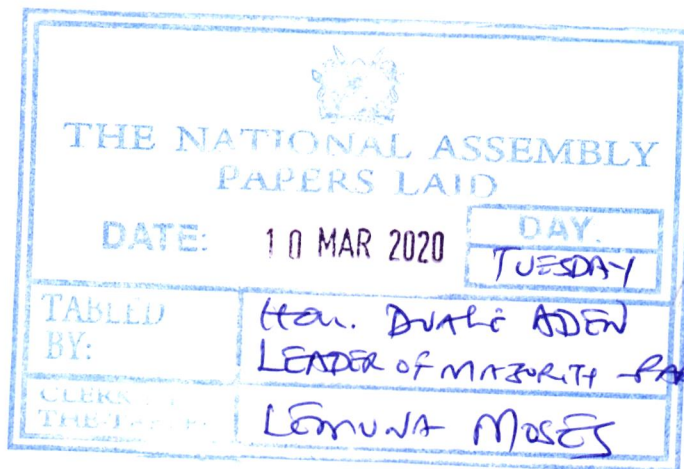 THE NATIONAL ASSEMBLY
PAPERS LAID
DATE: 10 MAR 2020
DAY.
TUESDAY
TABLED BY:
Hon. DUALE ADEN
LEADER OF MAJORITY
CLERK
LEMUNA MOSES